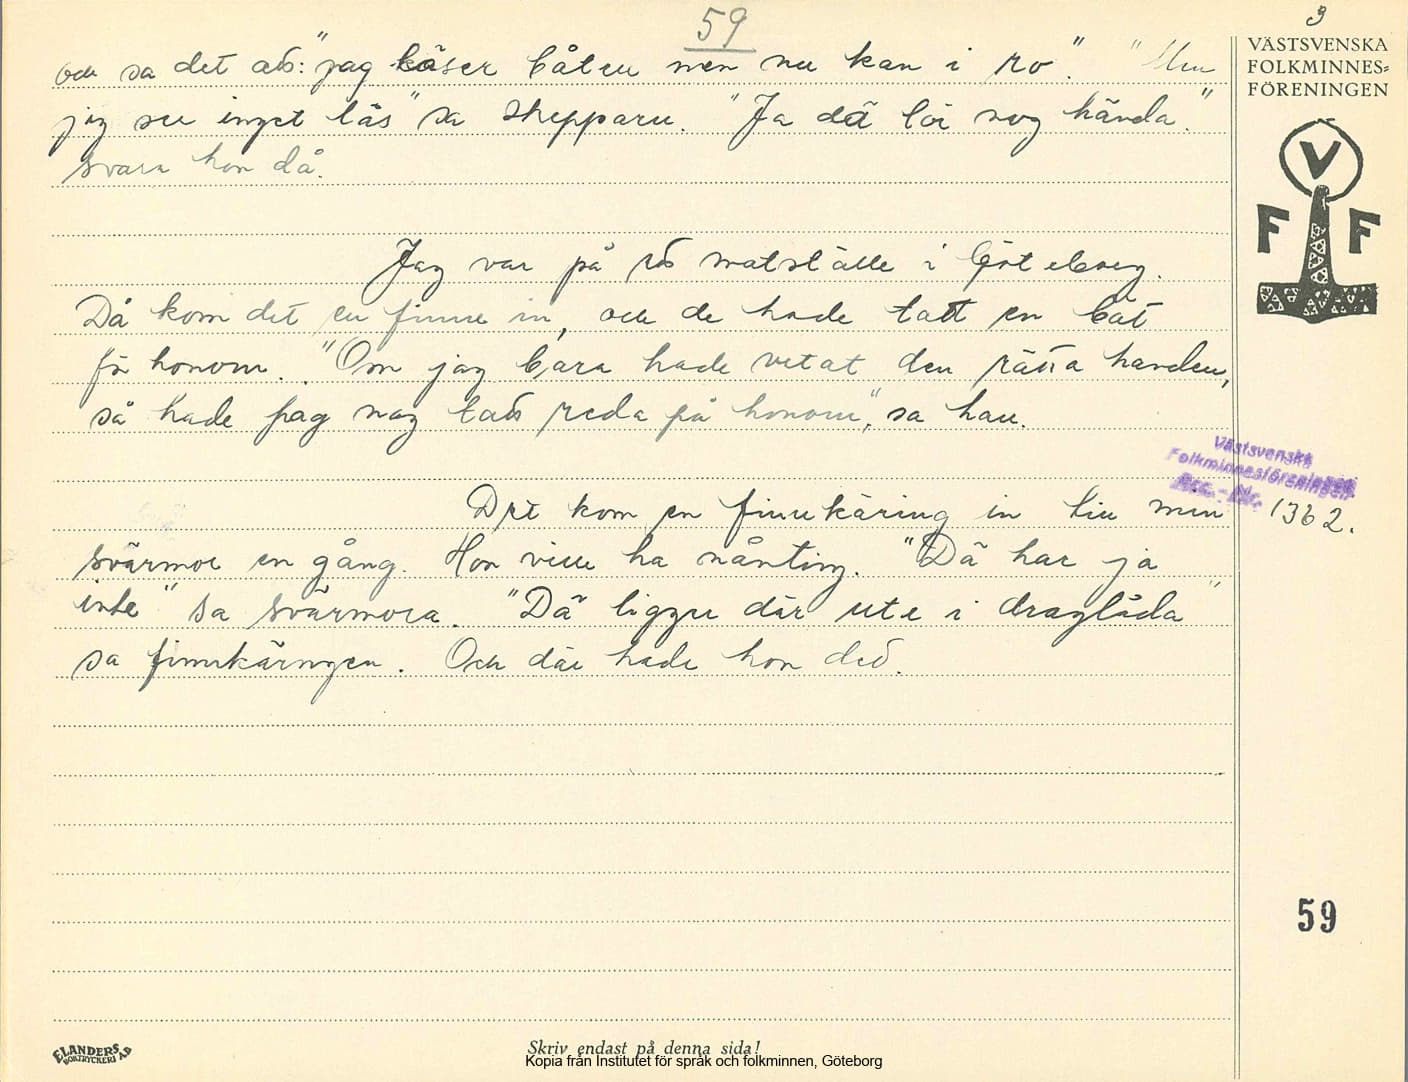 59
3
och sa det att: "jag låser båten men nu kan i ro". "Men
jag ser inget lås" sa skepparn. "Ja dä lär nog hända."
svara hon då.
Jag var på ett matställe i Göteborg.
Då kom det en finne in, och de hade tatt en båt
för honom. "Om jag bara hade vetat den rätta handen,
så hade jag nog tatt reda på honom", sa han.
Det kom en finnkäring in till min
svärmor en gång. Hon ville ha nånting. "Dä har ja
inte" sa svärmora. "Dä ligger där ute i draglåda"
sa finnkäringen. Och där hade hon det.
VÄSTSVENSKA
FOLKMINNES=
FÖRENINGEN
V
F F
Västsvenska
Folkminnesföreningen
Acc.-Nr. 1362.
59
ELANDERS
BOKTRYCKERI AB
Skriv endast på denna sida!
Kopia från Institutet för språk och folkminnen, Göteborg